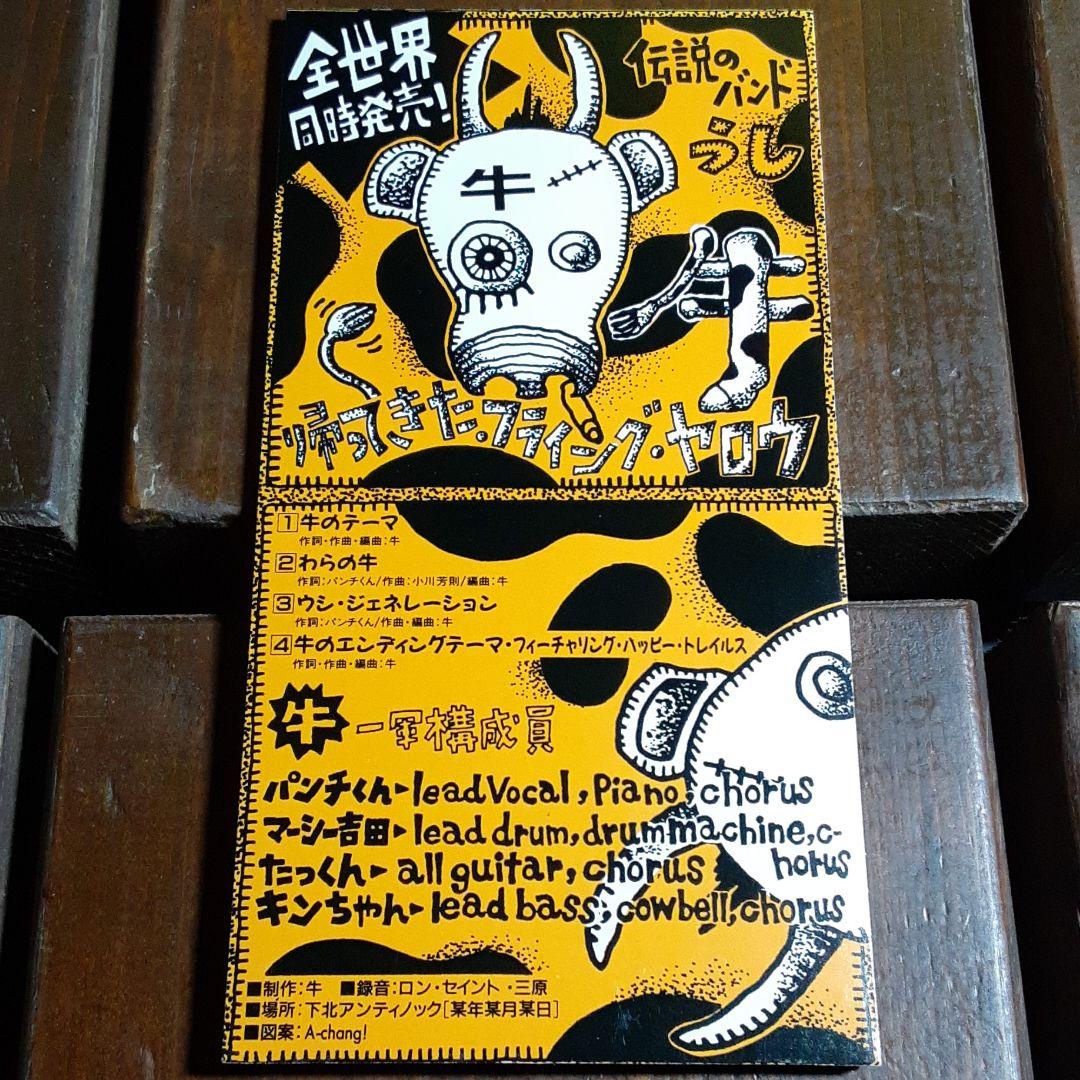 全世界
同時発売!
伝説の
バンド
うし
牛
牛
帰ってきた。フライング・ヤロウ
1 牛のテーマ
作詞・作曲・編曲:牛
2 わらの牛
作詞:パンチくん/作曲:小川芳則/編曲:牛
3 ウシ・ジェネレーション
作詞:パンチくん/作曲・編曲:牛
4 牛のエンディングテーマ・フィーチャリング・ハッピー・トレイルス
作詞・作曲・編曲:牛
牛 一軍構成員
パンチくん▶lead Vocal, Piano, chorus
マーシー吉田▶lead drum, drummachine, c-
horus
たっくん▶all guitar, chorus
キンちゃん▶lead bass, cowbell, chorus
■制作:牛 ■録音:ロン・セイント・三原
■場所:下北アンティノック[某年某月某日]
■図案:A-chang!